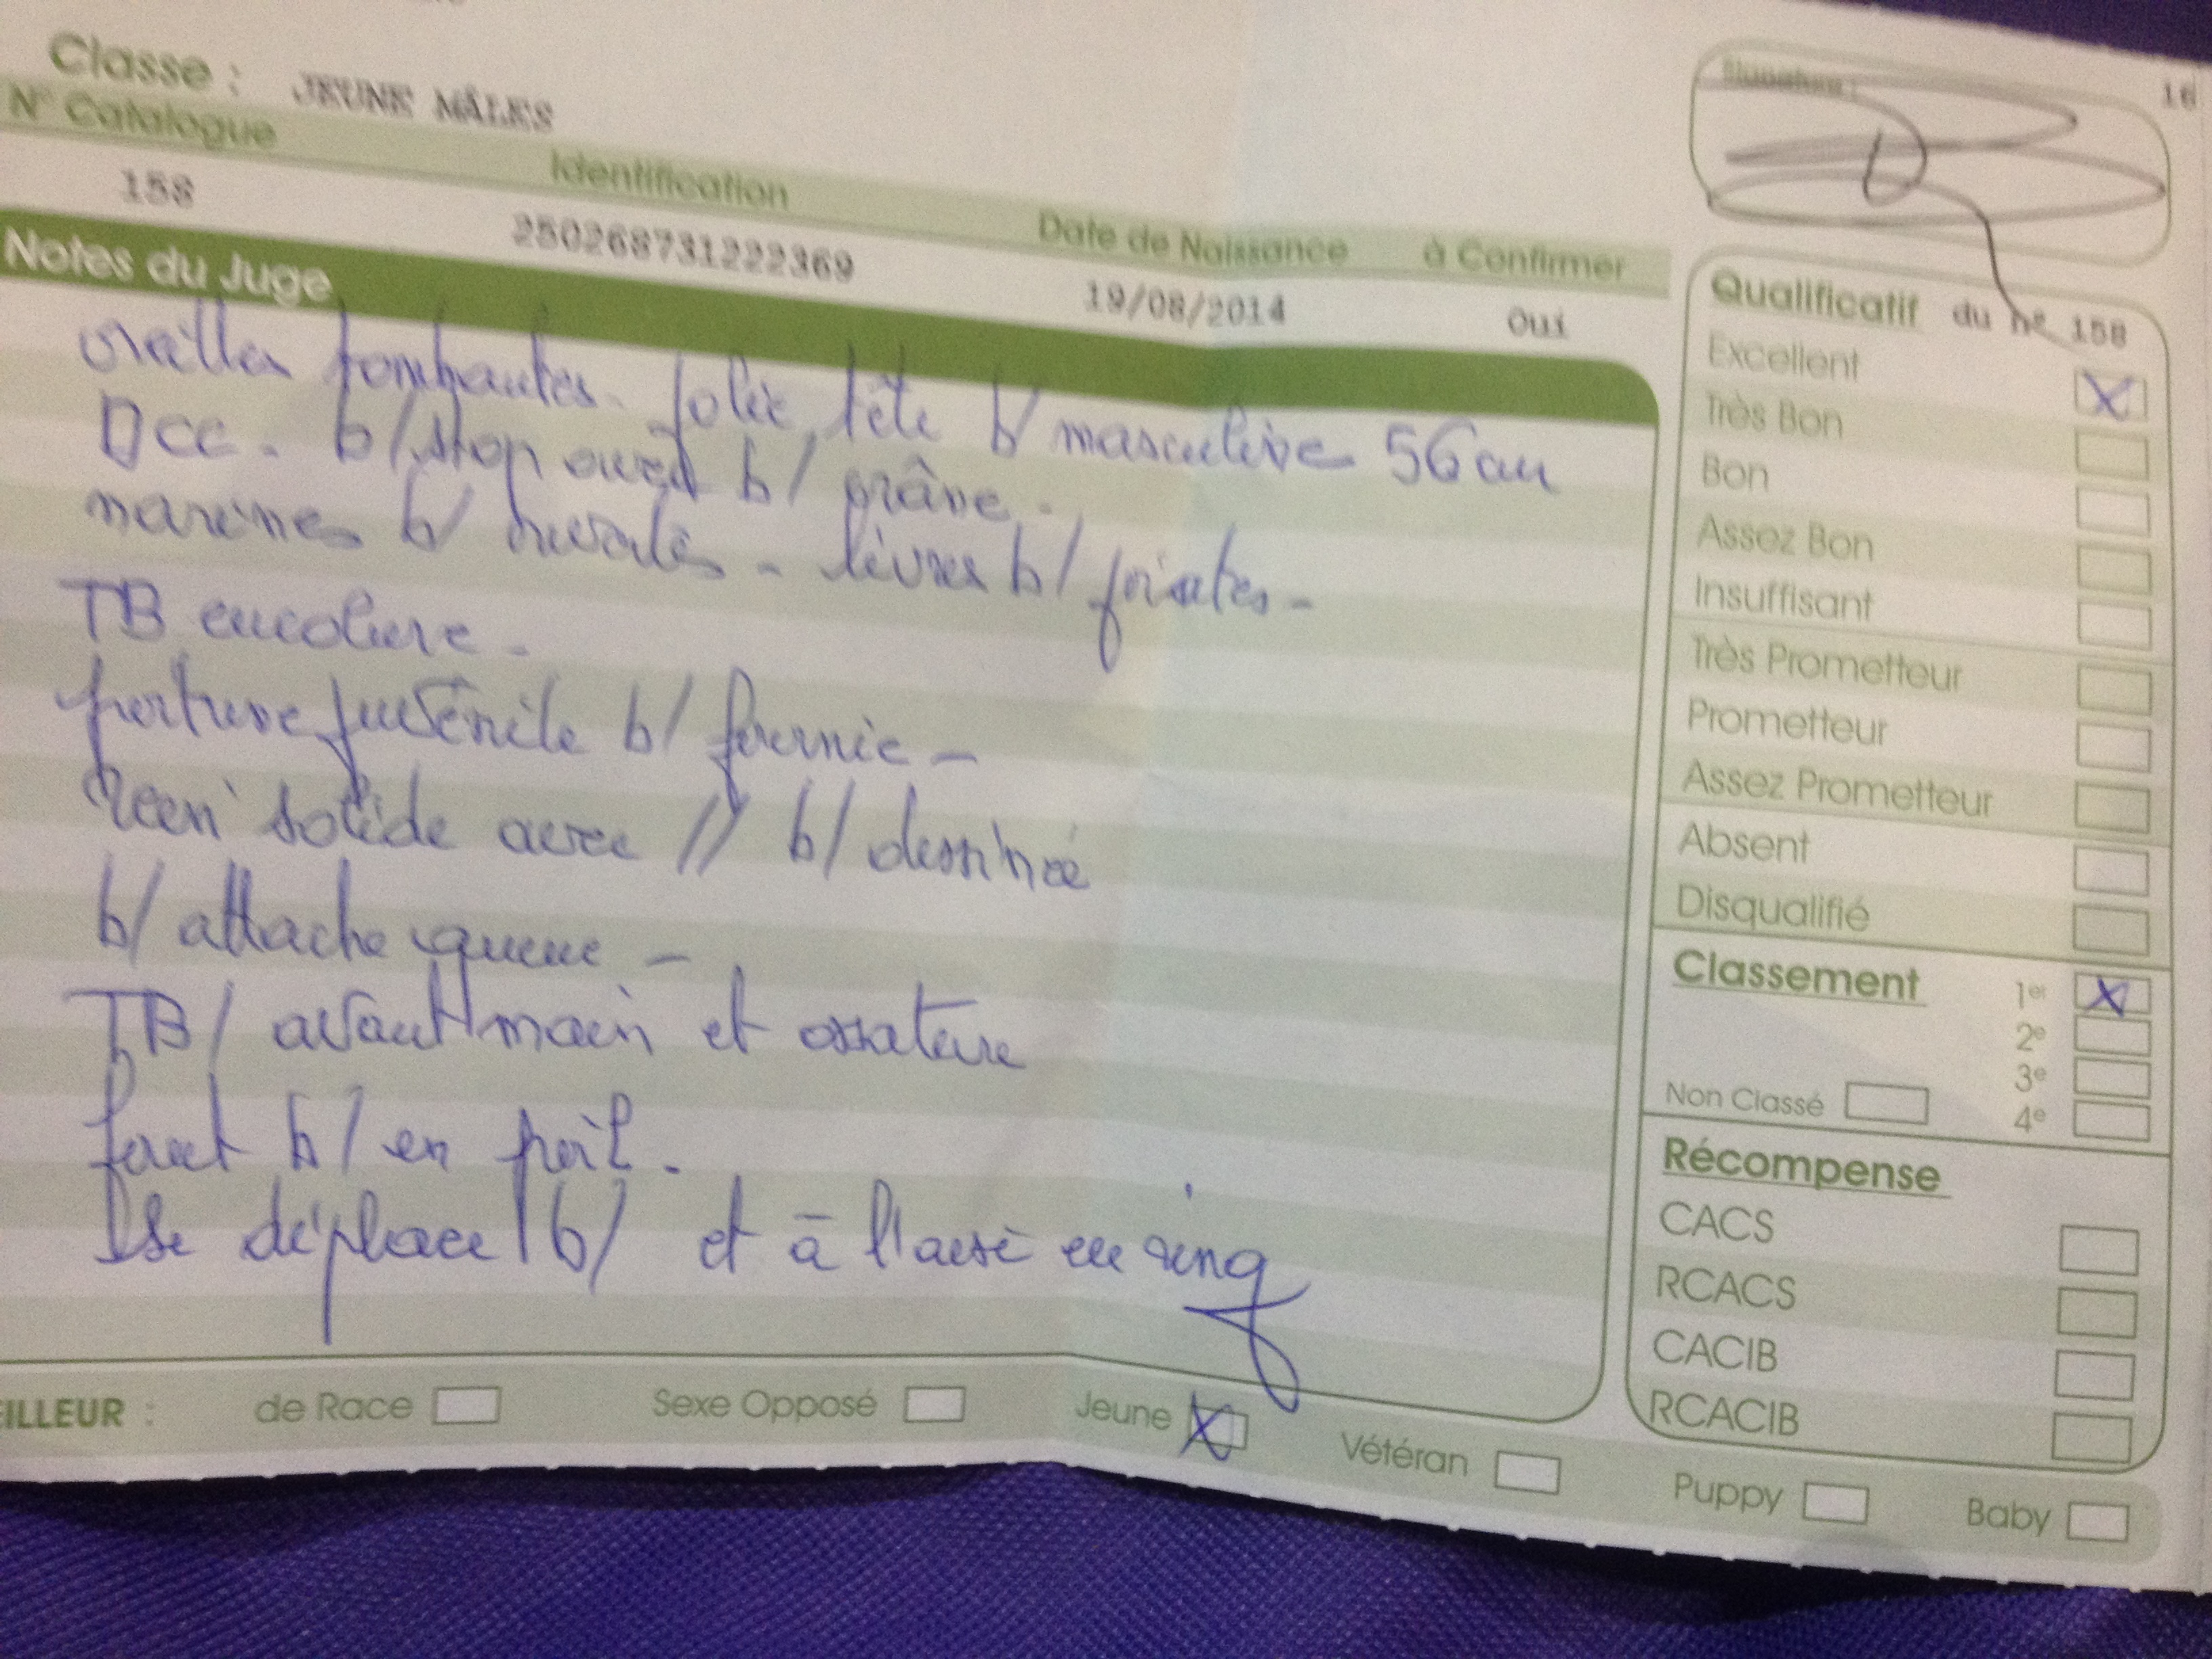 Classe : JEUNE MÂLES
16
Signature :
N° Catalogue Identification Date de Naissance à Confirmer
158 250268731222369 19/08/2014 Oui
Notes du Juge
oreilles tombantes. Jolie tête b/ masculine 56 cm
Dcc. b/ stop b/ crâne.
narines b/ - lèvres b/ jointes -
TB encolure -
juvénile b/ fournie -
rein solide avec // b/ dessinée
b/ attache queue -
TB/ avant main et ossature
b/ en poil.
Se déplace b/ et à l'aise en ring
Qualificatif du n° 158
Excellent X
Très Bon
Bon
Assez Bon
Insuffisant
Très Prometteur
Prometteur
Assez Prometteur
Absent
Disqualifié
Classement 1er X
2e
3e
Non Classé 4e
Récompense
CACS
RCACS
CACIB
RCACIB
EILLEUR : de Race Sexe Opposé Jeune X Vétéran Puppy Baby